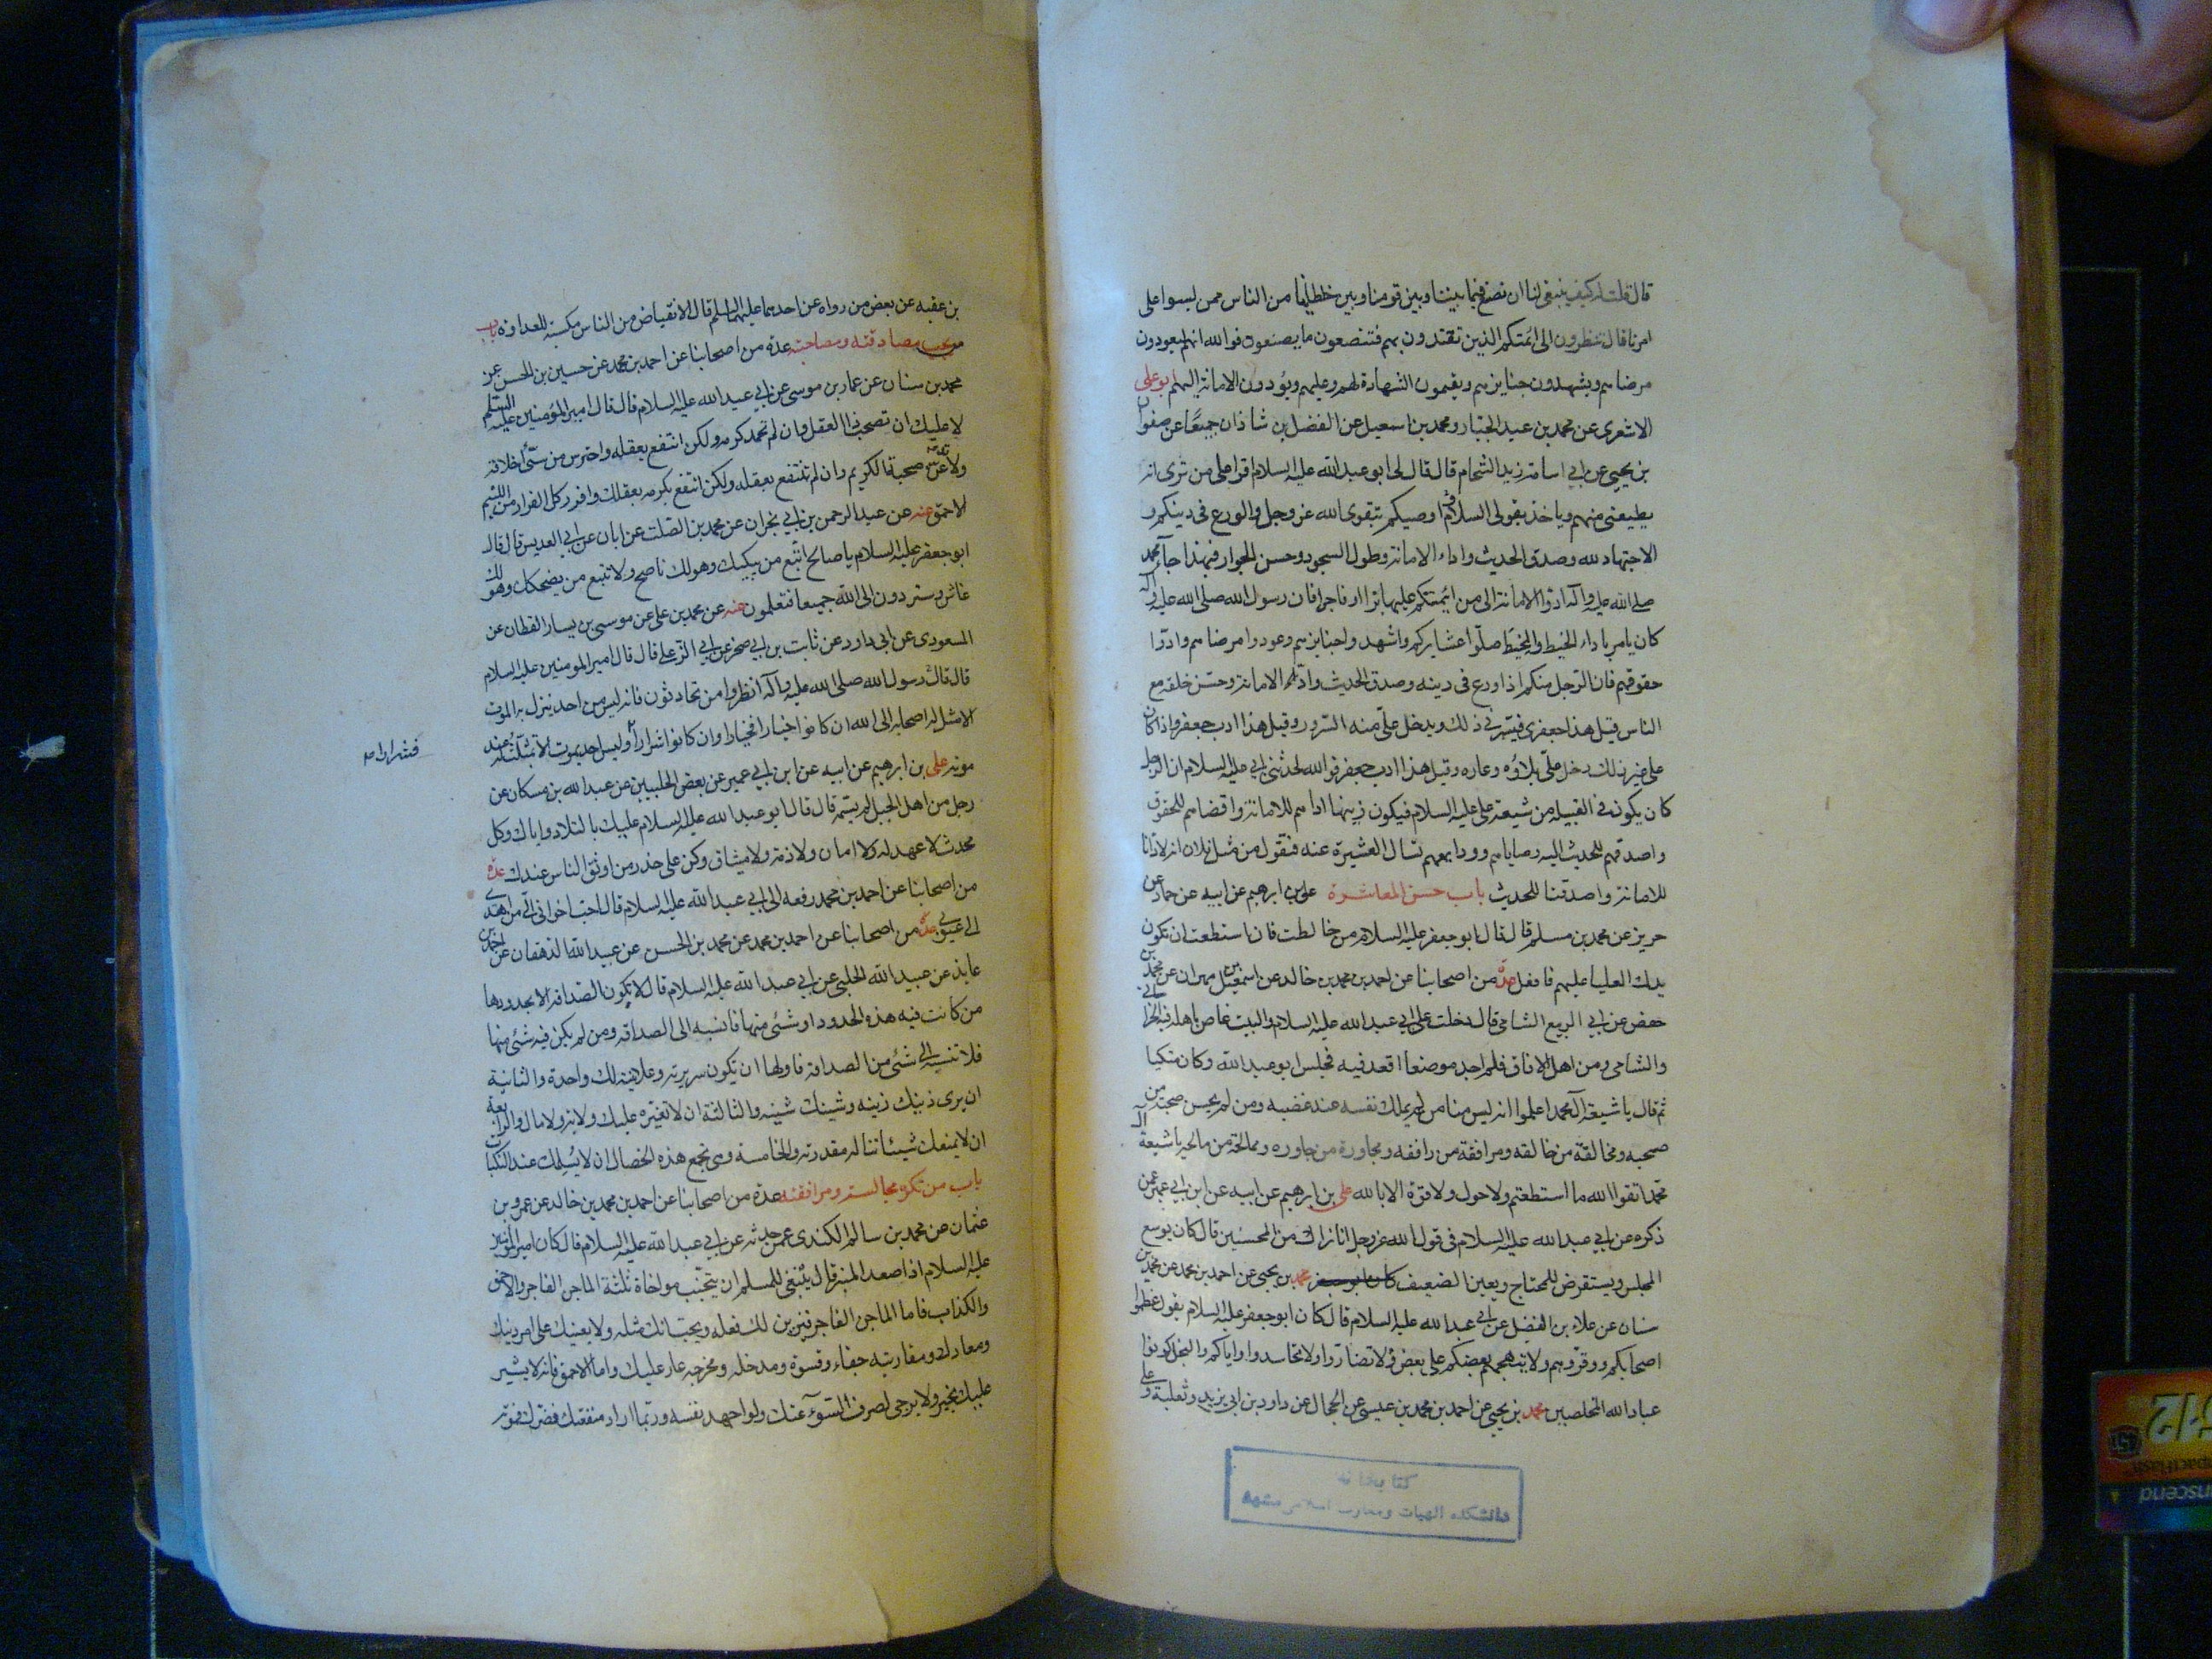 قال قلت له كيف ينبغي لنا ان نصنع فيما بيننا وبين قومنا وبين خلطائنا من الناس ممن ليسوا على
امرنا فال تنظرون الى ائمتكم الذين تقتدون بهم فتصنعون ما يصنعون فوالله انهم ليعودون
مرضاهم ويشهدون جنايزهم ويقيمون الشهادة لهم وعليهم ويؤدون الامانة اليهم ابو على
الاشعرى عن محمد بن عبد الجبار ومحمد بن اسمعيل عن الفضل بن شاذان جميعًا عن صفوان
بن يحيى عن ابي اسامة زيد الشحام قال قال لى ابو عبد الله عليه السلام اقرا على من ترى انه
يطيعنى منهم وياخذ بقولى السلام و اوصيكم بتقوى الله عز وجل والورع فى دينكم و
الاجتهاد لله وصدق الحديث واداء الامانة وطول السجود وحسن الجوار فبهذا جآء محمد
صلى الله عليه وآله ادّوا الامانة الى من ائتمنكم عليها برا او فاجرا فان رسول الله صلى الله عليه وآله
كان يامر باداء الخيط والمخيط صلّوا عشايركم واشهدوا جنايزهم وعودوا مرضاهم وادّوا
حقوقهم فان الرّجل منكم اذا ورع فى دينه وصدق الحديث وادّى الامانة وحسّن خلقه مع
الناس قيل هذا جعفرى فيسّرنى ذلك ويدخل علىّ منه السّرور وقيل هذا ادب جعفر واذا كان
على غير ذلك دخل علىّ بلاؤه وعاره وقيل هذا ادب جعفر فوالله لحدثنى ابي عليه السلام ان الرجل
كان يكون فى القبيلة من شيعة على عليه السلام فيكون زينها اداهم للامانة واقضاهم للحقوق
واصدقهم للحديث اليه وصاياهم وودايعهم تسال العشيرة عنه فتقول من مثل فلان انه لادّانا
للامانة واصدقنا للحديث باب حسن المعاشرة على بن ابرهيم عن ابيه عن حماد عن
حريز عن محمد بن مسلم قال قال ابو جعفر عليه السلام من خالطت فان استطعت ان تكون
يدك العليا عليهم فافعل عدّة من اصحابنا عن احمد بن محمد بن خالد عن اسمعيل بن مهران عن محمد بن
حفص عن ابي الربيع الشامى قال دخلت على ابي عبد الله عليه السلام والبيت غاص باهله فيه الخراسانى
والشامى ومن اهل الافاق فلم اجد موضعا اقعد فيه فجلس ابو عبد الله وكان متكيا
ثم قال يا شيعة آل محمد اعلموا انه ليس منا من لم يملك نفسه عند غضبه ومن لم يحسن صحبة من
صحبه ومخالقة من خالقه ومرافقة من رافقه ومجاورة من جاوره وممالحة من مالحه يا شيعة آل
محمّد اتقوا الله ما استطعتم ولا حول ولا قوّة الا بالله على بن ابرهيم عن ابيه عن ابن ابي عمير عمن
ذكره عن ابي عبد الله عليه السلام فى قول الله عز وجل انا نراك من المحسنين قال كان يوسع
المجلس ويستقرض للمحتاج ويعين الضعيف محمد بن يحيى عن احمد بن محمد عن محمد بن
سنان عن علاء بن الفضيل عن ابي عبد الله عليه السلام قال كان ابو جعفر عليه السلام يقول عظموا
اصحابكم ووقّروهم ولا يتهجم بعضكم على بعض ولا تضارّوا ولا تحاسدوا واياكم والبخل كونوا
عباد الله المخلصين محمد بن يحيى عن احمد بن محمد بن عيسى عن الحجال عن داود بن ابى يزيد وثعلبة و على
كتابخانه
دانشكده الهيات ومعارف اسلامى مشهد
بن عقبه عن بعض من رواه عن احدهما عليهما السلم قال الانقباض من الناس مكسبة للعداوة باب
من يجب مصادقته ومصاحبته عدة من اصحابنا عن احمد بن محمد عن حسين بن الحسن عن
محمد بن سنان عن عمار بن موسى عن ابي عبد الله عليه السلام قال قال امير المؤمنين عليه السلم
لا عليك ان تصحب ذا العقل وان لم تحمد كرمه ولكن انتفع بعقله واحترس من سئ اخلاقه
ولا تدعن صحبة الكريم وان لم تنتفع بعقله ولكن انتفع بكرمه بعقلك وافرر كل الفرار من اللئيم
الاحمق عنه عن عبد الرحمن بن ابي نجران عن محمد بن الصلت عن ابان عن ابي العديس قال قال
ابو جعفر عليه السلام يا صالح اتبع من يبكيك وهو لك ناصح ولا تتبع من يضحكك وهو لك
غاش وستردون الى الله جميعا فتعلمون عنه عن محمد بن على عن موسى بن يسار القطان عن
المسعودى عن ابى داود عن ثابت بن ابي صخر عن ابي الزعلى قال قال امير المومنين عليه السلام
قال قال رسول الله صلى الله عليه وآله انظروا من تحادثون فانه ليس من احد ينزل به الموت
الا مثل له اصحابه الى الله ان كانوا خيارا فخيارا وان كانوا شرارا وليس احد يموت الا تمثلت له عند
موته على بن ابرهيم عن ابيه عن ابن ابي عمير عن بعض الحلبيين عن عبد الله بن مسكان عن
رجل من اهل الجبل لم يسمّه قال قال ابو عبد الله عليه السلام عليك بالتلاد واياك وكل
محدث لا عهد له ولا امان ولا ذمة ولا ميثاق وكن على حذر من اوثق الناس عندك عدة
من اصحابنا عن احمد بن محمد رفعه الى ابي عبد الله عليه السلام قال احبّ اخوانى الىّ من اهدى
الى عيوبى عدة من اصحابنا عن احمد بن محمد عن محمد بن الحسن عن عبيد الله الدهقان عن احمد بن
عايذ عن عبيد الله الحلبى عن ابي عبد الله عليه السلام قال لا يكون الصداقة الا بحدودها
من كانت فيه هذه الحدود او شئ منها فانسبه الى الصداقة ومن لم يكن فيه شئ منها
فلا تنسبه الى شئ من الصداقة فاولها ان تكون سريرته وعلانيته لك واحدة والثانية
ان يرى زينك زينه وشينك شينه والثالثة ان لا تغيّره عليك ولاية ولا مال والرابعة
ان لا يمنعك شيئا تناله مقدرته والخامسة وهى تجمع هذه الخصال ان لا يسلمك عند النكبات
باب من تكره مجالسته ومرافقته عدة من اصحابنا عن احمد بن محمد بن خالد عن عمرو بن
عثمان عن محمد بن سالم الكندى عمن حدثه عن ابي عبد الله عليه السلام قال كان امير المؤمنين
عليه السلام اذا صعد المنبر قال ينبغى للمسلم ان يتجنّب مواخاة ثلثة الماجن الفاجر والاحمق
والكذاب فاما الماجن الفاجر فيزين لك فعله ويحب انك مثله ولا يعينك على امر دينك
ومعادك ومقاربته جفاء وقسوة ومدخله ومخرجه عار عليك واما الاحمق فانه لا يشير
عليك بخير ولا يرجى لصرف السّوء عنك ولو اجهد نفسه وربّما اراد منفعتك فضرّك فموته
فشرارا صد